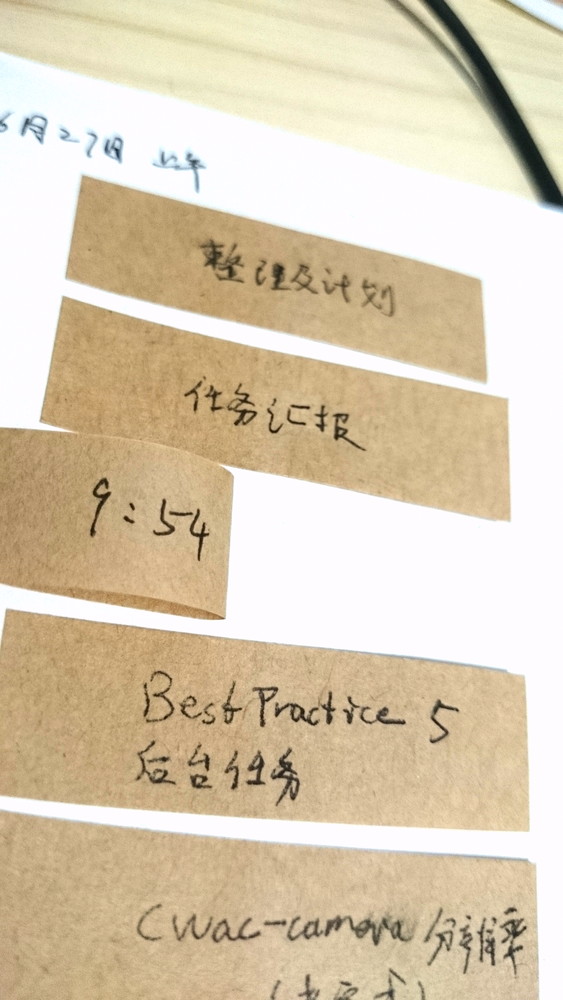 6月27日 上午
整理及计划
任务汇报
9:54
Best Practice 5
后台任务
Cwac-camera 分辨率